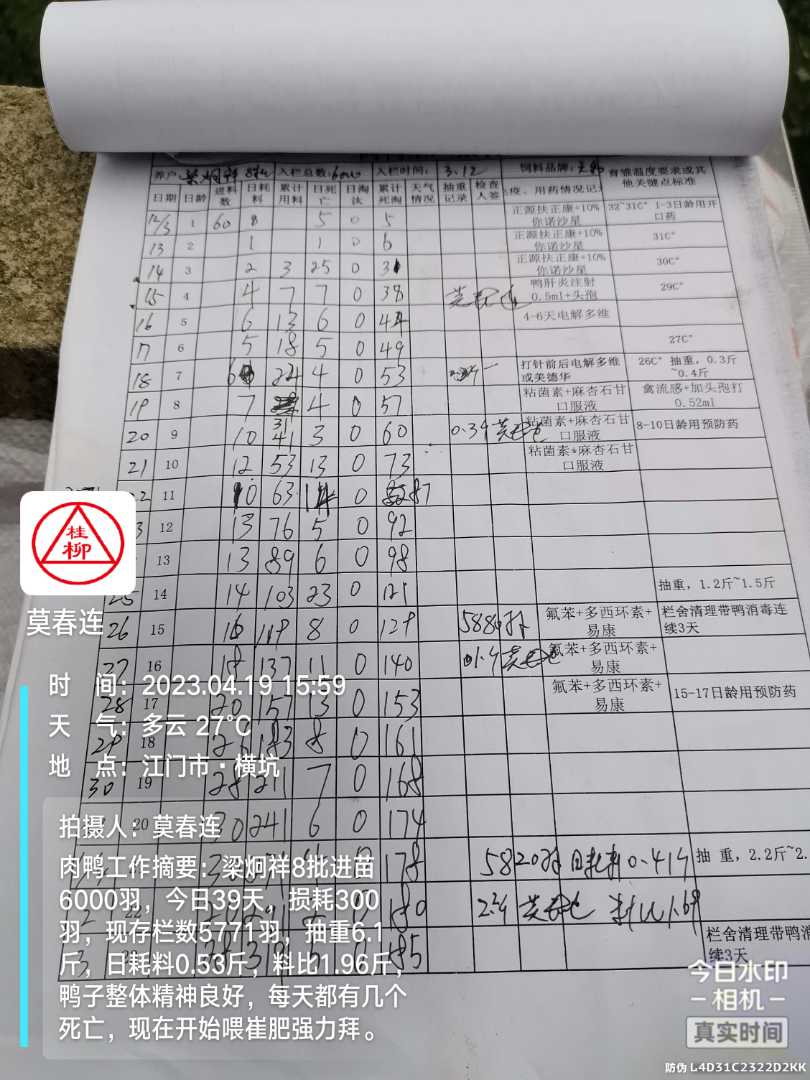 养户: 梁炯祥 8批 入栏总数:6000 入栏时间: 3.12 饲料品牌:
育雏温度要求或其他关键点标准
日期 日龄 进料数 日耗料 累计用料 日死亡 日淘汰 累计死淘 天气情况 抽重记录 检查人签 疫、用药情况记
12/3 1 60 8 5 0 5 正源扶正康+10%你诺沙星 32~31C° 1-3日龄用开口药
13 2 1 1 0 6 正源扶正康+10%你诺沙星 31C°
14 3 2 3 25 0 31 正源扶正康+10%你诺沙星 30C°
15 4 4 7 7 0 38 鸭肝炎注射0.5ml+头孢 29C°
16 5 6 13 6 0 44 4-6天电解多维
17 6 5 18 5 0 49 27C°
18 7 6 24 4 0 53 打针前后电解多维或美德华 26C° 抽重，0.3斤~0.4斤
19 8 7 31 4 0 57 粘菌素+麻杏石甘口服液 禽流感+加头孢打0.52ml
20 9 10 41 3 0 60 0.39 粘菌素+麻杏石甘口服液 8-10日龄用预防药
21 10 12 53 13 0 73 粘菌素+麻杏石甘口服液
22 11 10 63 14 0 87
12 13 76 5 0 92
13 13 89 6 0 98
25 14 14 103 23 0 121 抽重，1.2斤~1.5斤
26 15 16 119 8 0 129 588 氟苯+多西环素+易康 栏舍清理带鸭消毒连续3天
27 16 18 137 11 0 140 1.4 氟苯+多西环素+易康
28 17 20 157 13 0 153 氟苯+多西环素+易康 15-17日龄用预防药
29 18 26 183 8 0 161
30 19 28 211 7 0 168
20 30 241 6 0 174
178 5820羽 日耗料0.414 抽 重，2.2斤~2.
180 2.24 料比1.69
185 栏舍清理带鸭消
续3天
桂柳
莫春连
时 间：2023.04.19 15:59
天 气：多云 27℃
地 点：江门市·横坑
拍摄人：莫春连
肉鸭工作摘要：梁炯祥8批进苗
6000羽，今日39天，损耗300
羽，现存栏数5771羽，抽重6.1
斤，日耗料0.53斤，料比1.96斤，
鸭子整体精神良好，每天都有几个
死亡，现在开始喂崔肥强力拜。
今日水印
相机
真实时间
防伪 L4D31C2322D2KK